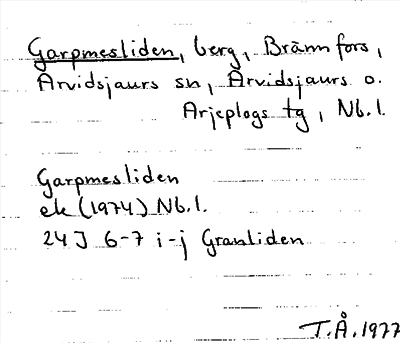 Garpmesliden, berg, Brännfors,
Arvidsjaurs sn, Arvidsjaurs o.
Arjeplogs tg, Nb.l.
Garpmesliden
ek (1974) Nb.l.
24J 6-7 i-j Granliden
T.Å. 1977